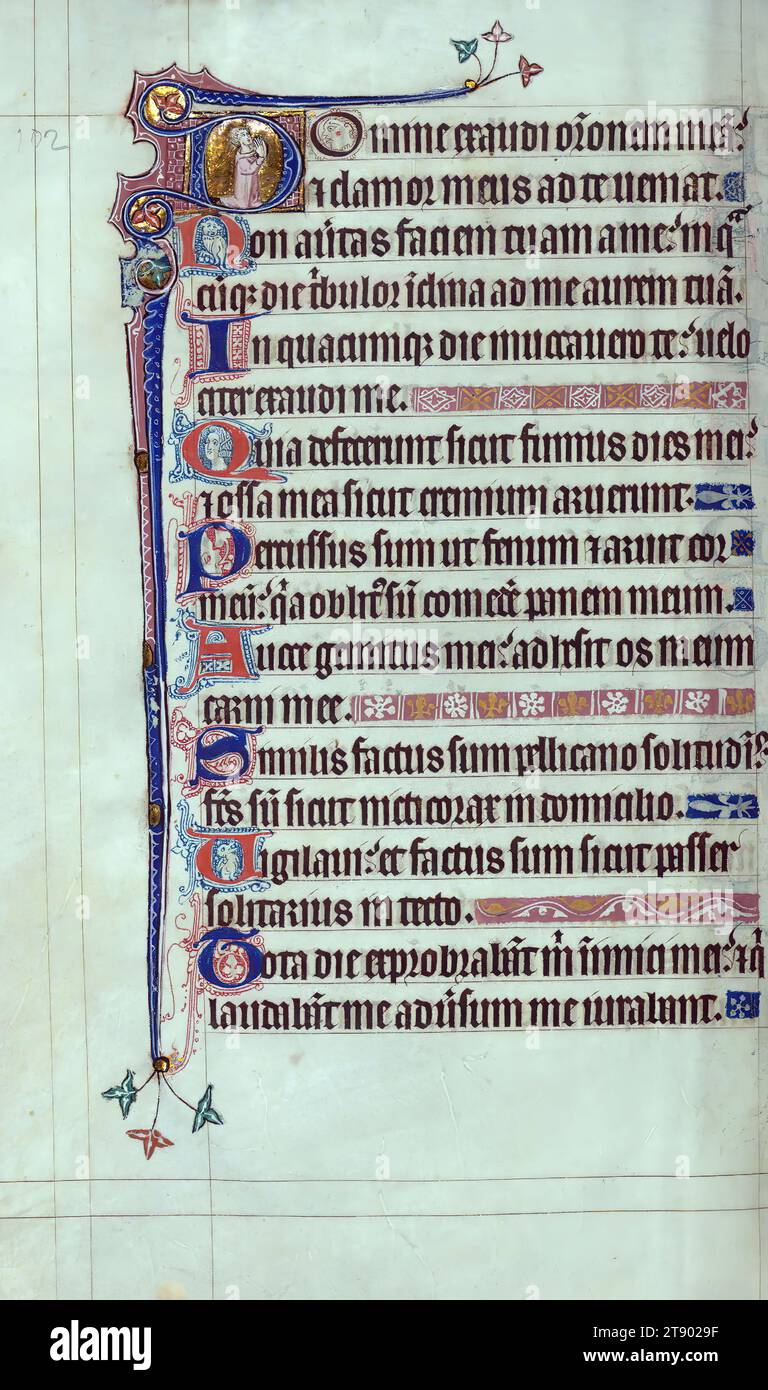 102
Domine exaudi or̃onem meã:
⁊ clamor meus ad te ueniat.
Non au̾tas faciem tuam a me: in q̃
cũq; die t̾bulor ĩclina ad me aurem tuã.
In quacumq; die inuocauero te: uelo
citer exaudi me.
Quia defecerunt sicut fumus dies mei:
⁊ ossa mea sicut cremium aruerunt.
Percussus sum ut fenum ⁊ aruit cor
meũ: q̃a oblitꝰ sũ comedẽ panem meum.
A uoce gemitus mei: adhesit os meum
carni mee.
Similis factus sum pellicano solitudĩs:
fc̃s sũ sicut nicticorax in domicilio.
Uigilaui: et factus sum sicut passer
solitarius in tecto.
Tota die exprobrabãt m̃ inimici mei: ⁊ q̃
laudabãt me adu̾sum me iurabant.
alamy
Image ID: 2T9029F
www.alamy.com